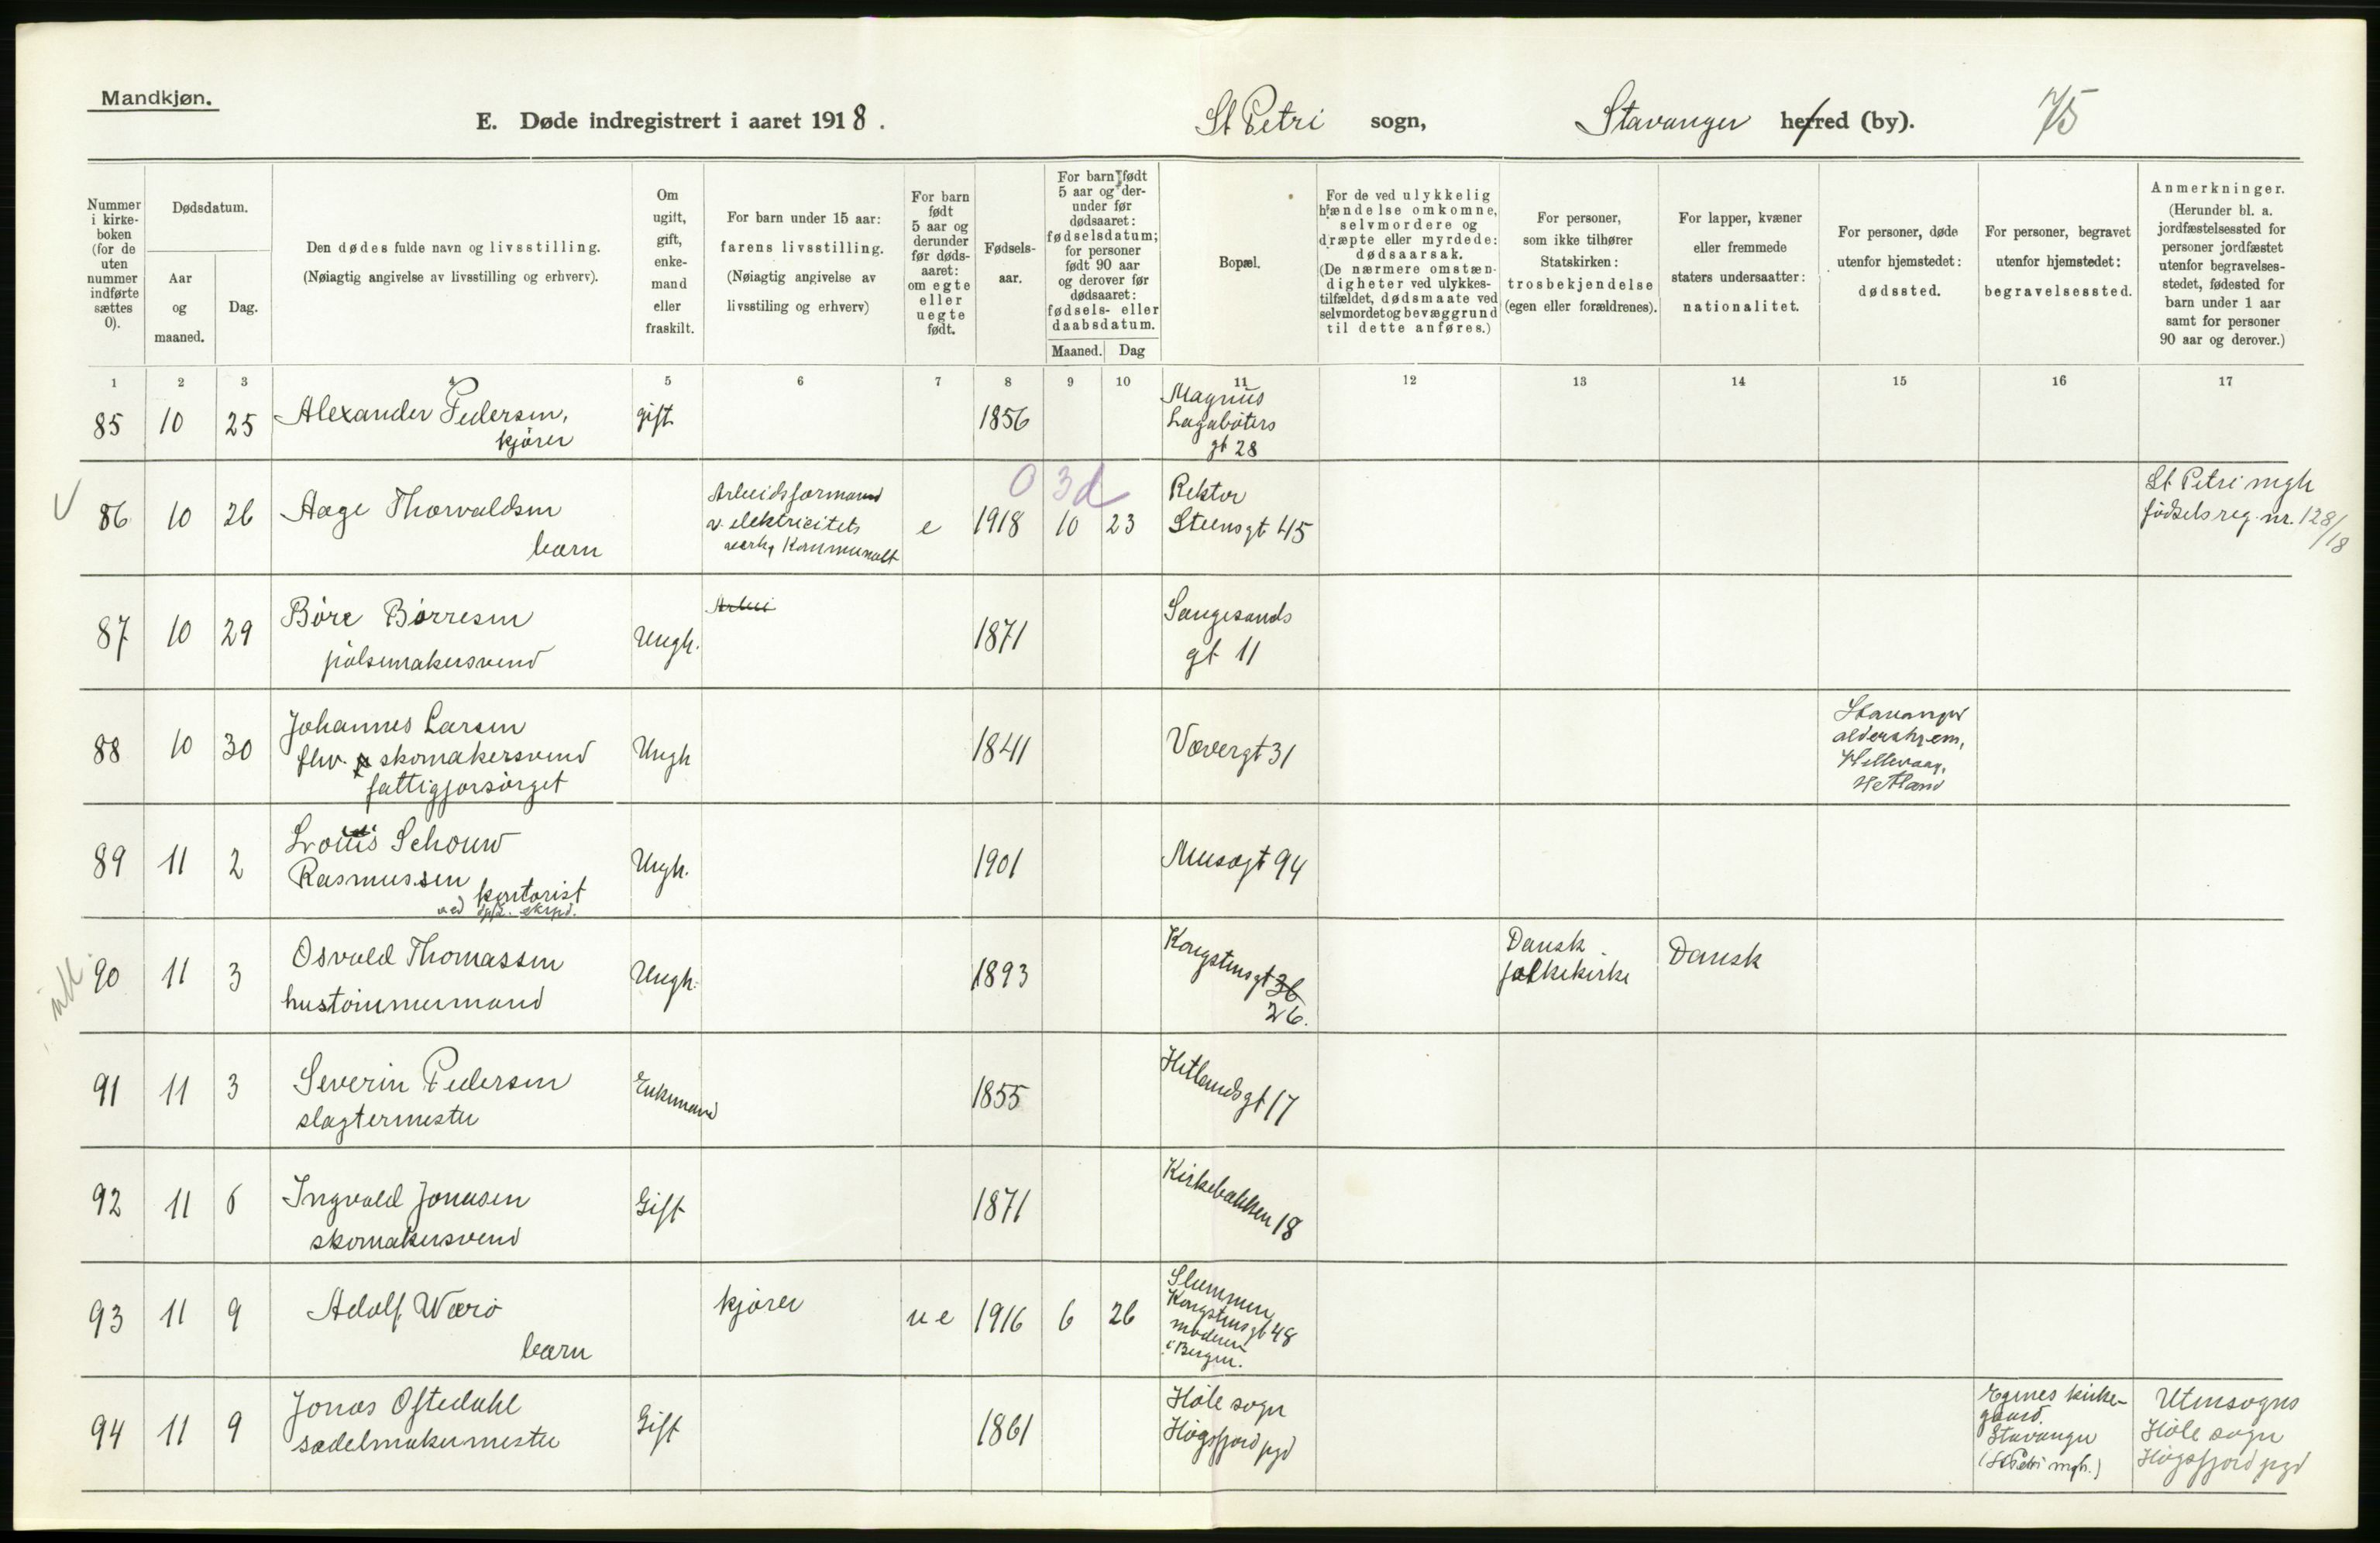 Mandkjøn.
E. Døde indregistrert i aaret 1918. St Petri sogn, Stavanger herred (by). 75
Nummer i kirke- boken (for de uten nummer indførte sættes 0).
Dødsdatum.
Aar og maaned.
Dag.
Den dødes fulde navn og livsstilling.
(Nøiagtig angivelse av livsstilling og erhverv).
Om ugift, gift, enke- mand eller fraskilt.
For barn under 15 aar:
farens livsstilling.
(Nøiagtig angivelse av
livsstiling og erhverv)
For barn født 5 aar og derunder før døds- aaret: om egte eller uegte født.
Fødsels- aar.
For barn født 5 aar og der- under før dødsaaret: fødselsdatum; for personer født 90 aar og derover før dødsaaret: fødsels- eller daabsdatum.
Maaned. Dag
Bopæl.
For de ved ulykkelig hændelse omkomne, selvmordere og dræpte eller myrdede: dødsaarsak. (De nærmere omstæn- digheter ved ulykkes- tilfældet, dødsmaate ved selvmordet og bevæggrund til dette anføres.)
For personer, som ikke tilhører Statskirken: trosbekjendelse (egen eller forældrenes).
For lapper, kvæner eller fremmede staters undersaatter: nationalitet.
For personer, døde utenfor hjemstedet: dødssted.
For personer, begravet utenfor hjemstedet: begravelsessted.
Anmerkninger. (Herunder bl. a. jordfæstelsessted for personer jordfæstet utenfor begravelses- stedet, fødested for barn under 1 aar samt for personer 90 aar og derover.)
1 2 3 4 5 6 7 8 9 10 11 12 13 14 15 16 17
85 10 25 Alexander Pedersen, gift 1856 Magnus
kjører Lagabøters
gt 28
O 3d
86 10 26 Aage Thorvaldsen Arbeidsformand e 1918 10 23 Rektor St Petri mgh
barn v. elektricitets Steensgt 45 fødselsreg. nr. 128/18
verk, Kommunalt
87 10 29 Børe Børresen Ungk. Arbei 1871 Sangesands
pølsemakersvend gt 11
88 10 30 Johannes Larsen Ungk 1841 Vævergt 31 Stavanger
fhv. skomakersvend aldershjem,
fattigforsørget Hillevaag,
Hetland
89 11 2 Louis Schouw Ungk. 1901 Musægt 94
Rasmussen kontorist
ved
90 11 3 Osvald Thomassen Ungk. 1893 Kongstensgt 36 Dansk Dansk
hustømmermand 26. folkekirke
91 11 3 Severin Pedersen Enkemand 1855 Hetlandsgt 17
slagtermester
92 11 6 Ingvald Jonassen Gift 1871 Kirkebakken 18
skomakersvend
93 11 9 Adolf Værø kjører u e 1916 6 26 Slummen
barn Kongstensgt 48
moderen
i Bergen.
94 11 9 Jonas Oftedahl Gift 1861 Høle sogn Egenes kirke- Utensogns
sadelmakermester Høgsfjord pgd gaard. Høle sogn
Stavanger Høgsfjord pgd
(St Petri mgh.)